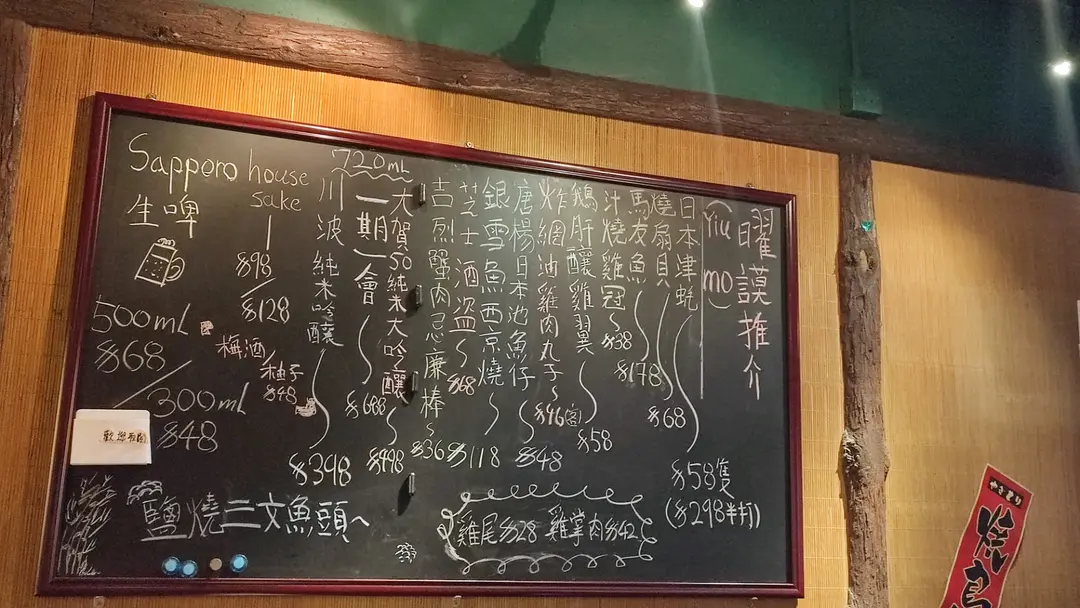 曜謨推介
(Yiu mo)
日本津蚝 $58隻
($298半打)
燒扇貝 $68
馬友魚 $178
汁燒雞冠 $38
鵝肝釀雞翼 $58
炸網油雞肉丸子 $46(客)
唐楊日本池魚仔 $48
銀雪魚西京燒 $118
芝士酒盜 $68
吉烈蟹肉忌廉棒 $36
720mL
大賀50純米大吟釀 $498
一期一會 $688
川波純米吟釀 $398
Sapporo house sake
生啤
$98
$128
500mL
$68
梅酒
柚子
$48
300mL
$48
鹽燒三文魚頭
雞尾$28 雞掌肉$42
やきとり
焼鳥